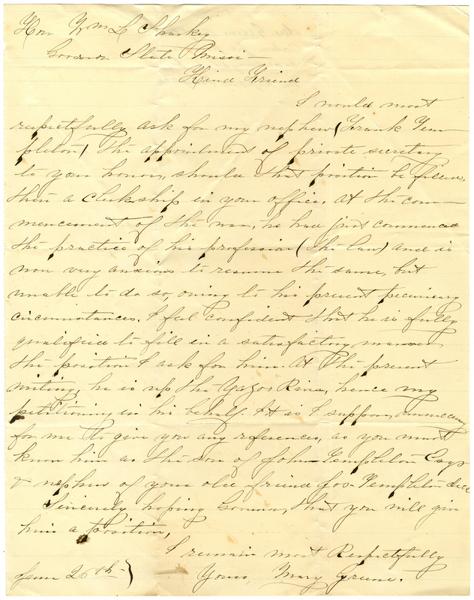 Hon Wm L Sharkey
Governor State Missi—
Kind Friend
I would most
respectfully ask for my nephew (Frank Tem-
pleton) the appointment of private secretary
to your honor, should that position be filled,
then a clerkship in your office. At the com-
mencement of the war, he had just commenced
the practice of his profession (the law) and is
now very anxious to resume the same, but
unable to do so, owing to his present pecuniary
circumstances. I feel confident that he is fully
qualified to fill in a satisfactory manner
the position I ask for him. At this present
writing, he is up the Yazoo River, hence my
petitioning in his behalf. It is I suppose, unnecessary
for me to give you any references, as you must
know him as the son of John Templeton Esqr
& nephew of your old friend Jos. Templeton decd
Sincerely hoping Governor, that you will give
him a position,
I remain most Respectfully
June 26th} Yours, Mary Greene.